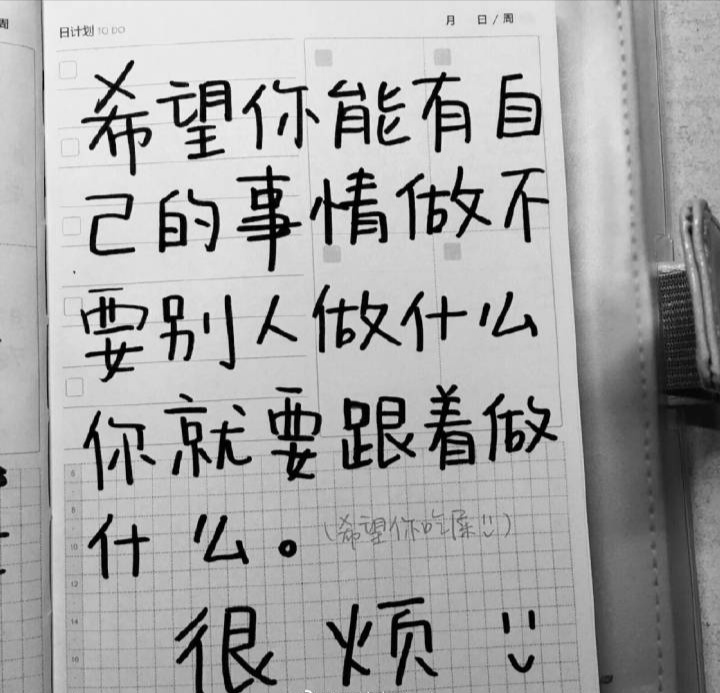 日计划 TO DO
月 日 / 周
希望你能有自
己的事情做不
要别人做什么
你就要跟着做
什么。(希望你吃屎!!)
很烦
6
8
10
12
14
16